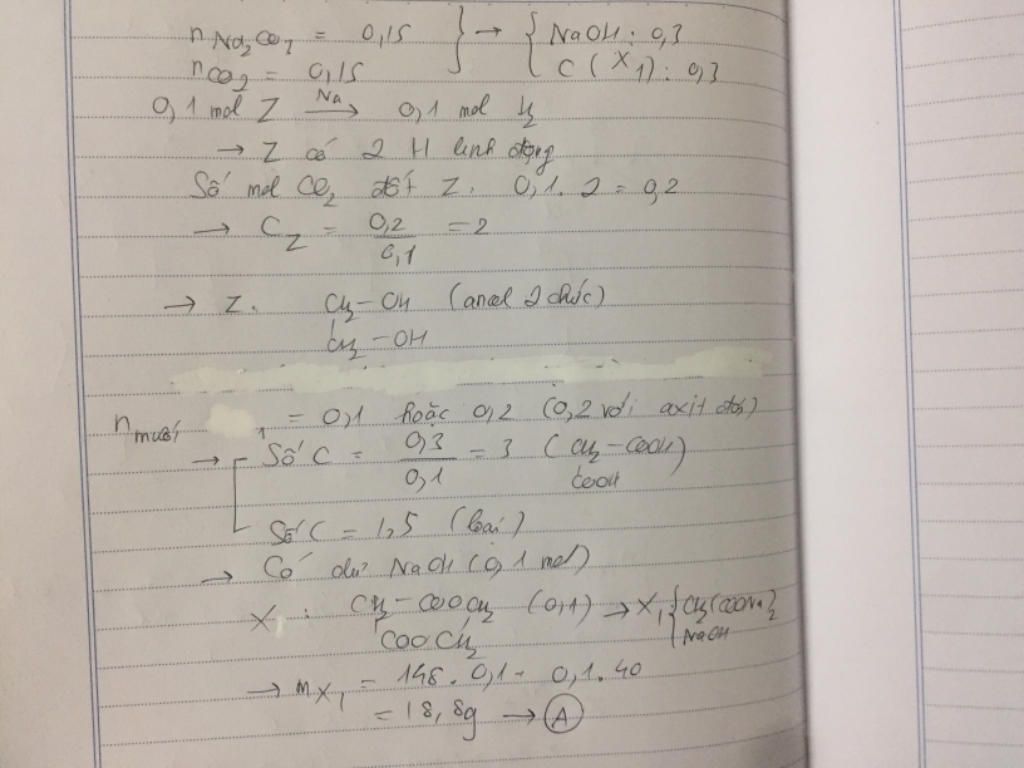 nNa2CO3 = 0,15 } → { NaOH : 0,3
nCO2 = 0,15 C (X1) : 0,3
0,1 mol Z Na → 0,1 mol H2
→ Z có 2 H linh động
Số mol CO2 đốt Z : 0,1 . 2 = 0,2
→ CZ = 0,2 / 0,1 = 2
→ Z : CH2 - OH (ancol 2 chức)
CH2 - OH
nmuối = 0,1 hoặc 0,2 (0,2 với axit đơn)
→ [ Số C = 0,3 / 0,1 = 3 (CH2 - COOH)
COOH
Số C = 1,5 (loại)
→ Có dư NaOH (0,1 mol)
X : CH2 - COOCH2 (0,1) → X1 { CH2(COONa)2
COOCH2 NaOH
→ mX1 = 148 . 0,1 - 0,1 . 40
= 18,8g → A